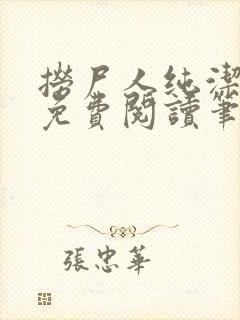 撈尸人純潔
免費閱讀筆
張忠華